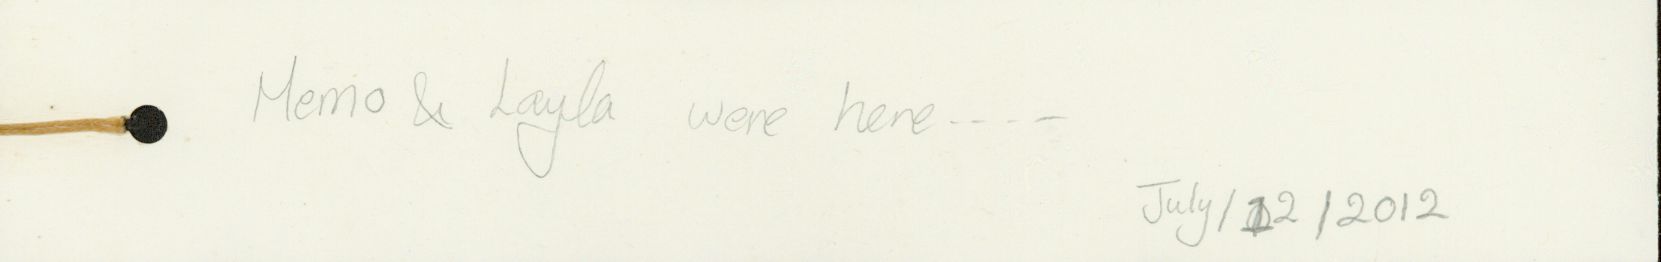 Memo & Layla were here----
July/12/2012